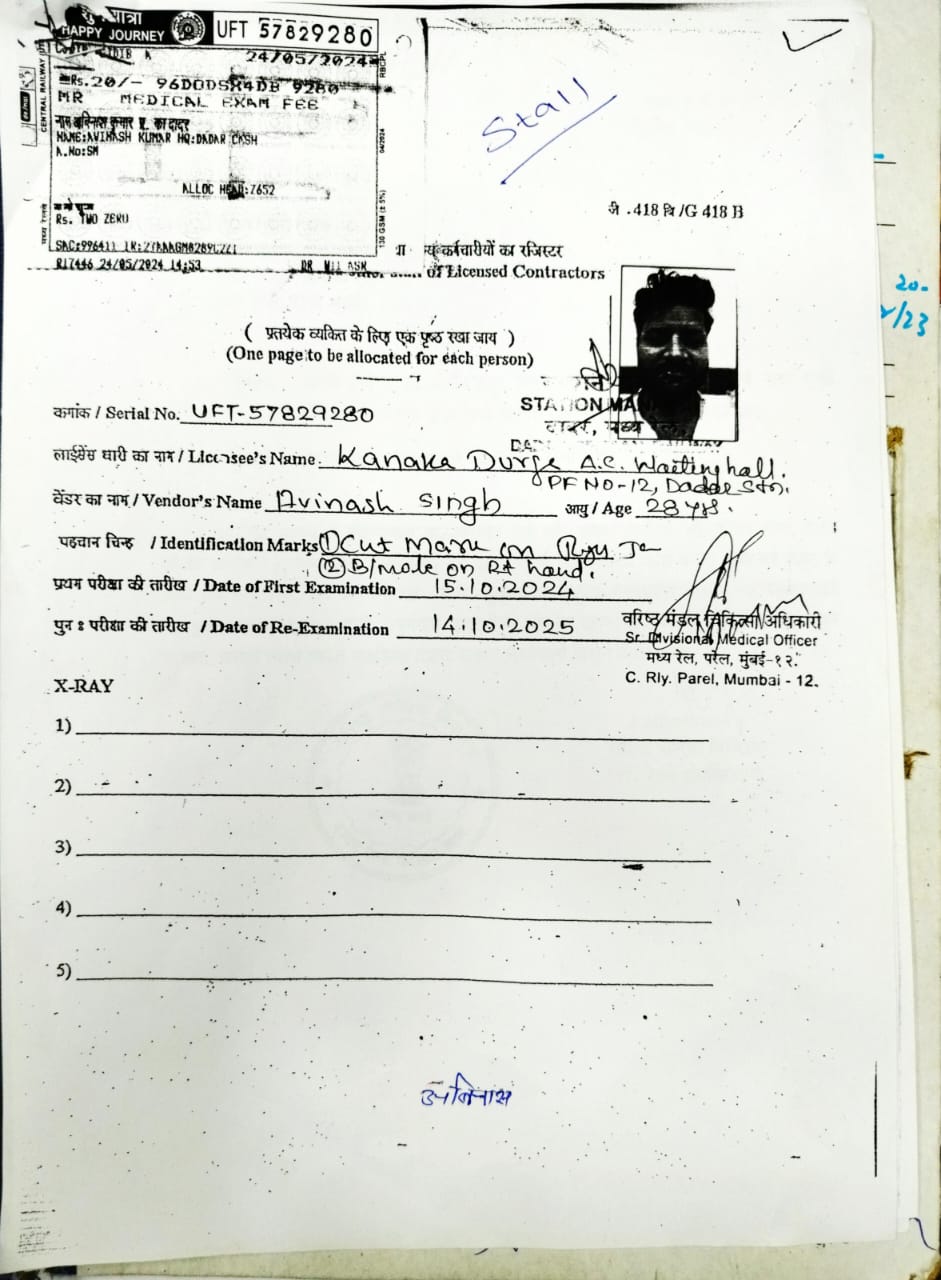 शुभ यात्रा
HAPPY JOURNEY
UFT 57829280
24/05/2024
Rs.20/- 96DODSX4DB 9280
MR MEDICAL EXAM FEE
NAME:AVINASH KUMAR HQ:DADAR CASH
A.No:SM
ALLOC HEAD:7652
Rs. TWO ZERO
R17446 24/05/2024 14:53
CENTRAL RAILWAY
RBCPL
04/2024
130 GSM (± 5%)
मध्य रेलवे
Stall
जी .418 बि /G 418 B
कर्मचारीयों का रजिस्टर
of Licensed Contractors
( प्रत्येक व्यकित के लिए एक पृष्ठ रखा जाय )
(One page to be allocated for each person)
STATION MAN
दादर, मध्य रेल
कमांक / Serial No. UFT-57829280
लाईसेंस धारी का नाम / Licensee's Name. Kanaka Durga A.C. Waiting hall.
PF NO-12, Dadar Stn.
वेंडर का नाम / Vendor's Name Avinash Singh आयु / Age 28 yrs.
पहचान चिन्ह / Identification Marks ① Cut Mark on
② B/mole on Rt hand.
प्रथम परीक्षा की तारीख / Date of First Examination 15.10.2024
पुन ः परीक्षा की तारीख / Date of Re-Examination 14.10.2025
वरिष्ठ मंडल चिकित्सा अधिकारी
Sr. Divisional Medical Officer
मध्य रेल, परेल, मुंबई-१२.
C. Rly. Parel, Mumbai - 12.
X-RAY
1)
2)
3)
4)
5)
अविनाश
20-
/23